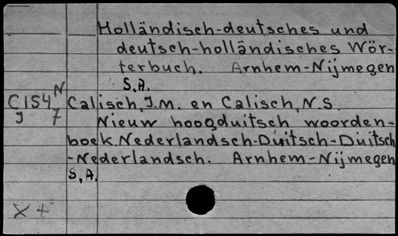 Holländisch-deutsches und
deutsch-holländisches Wör-
terbuch. Arnhem-Nijmegen
S.A.
N
C154 Calisch, I.M. en Calisch, N.S.
7 Nieuw hoogduitsch woorden-
boek. Nederlandsch-Duitsch-Duitsch
-Nederlandsch. Arnhem-Nijmegen
S.A.
X +